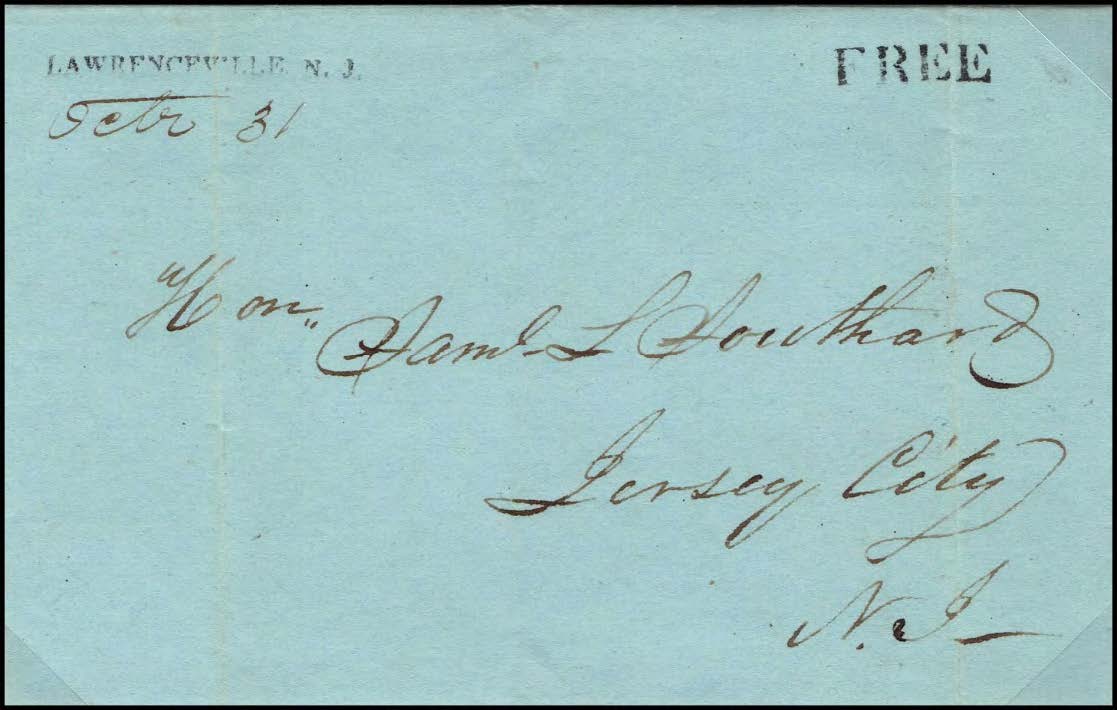 LAWRENCEVILLE. N. J.
FREE
Octr 31
Hon,, Saml L Southard
Jersey City
N. J